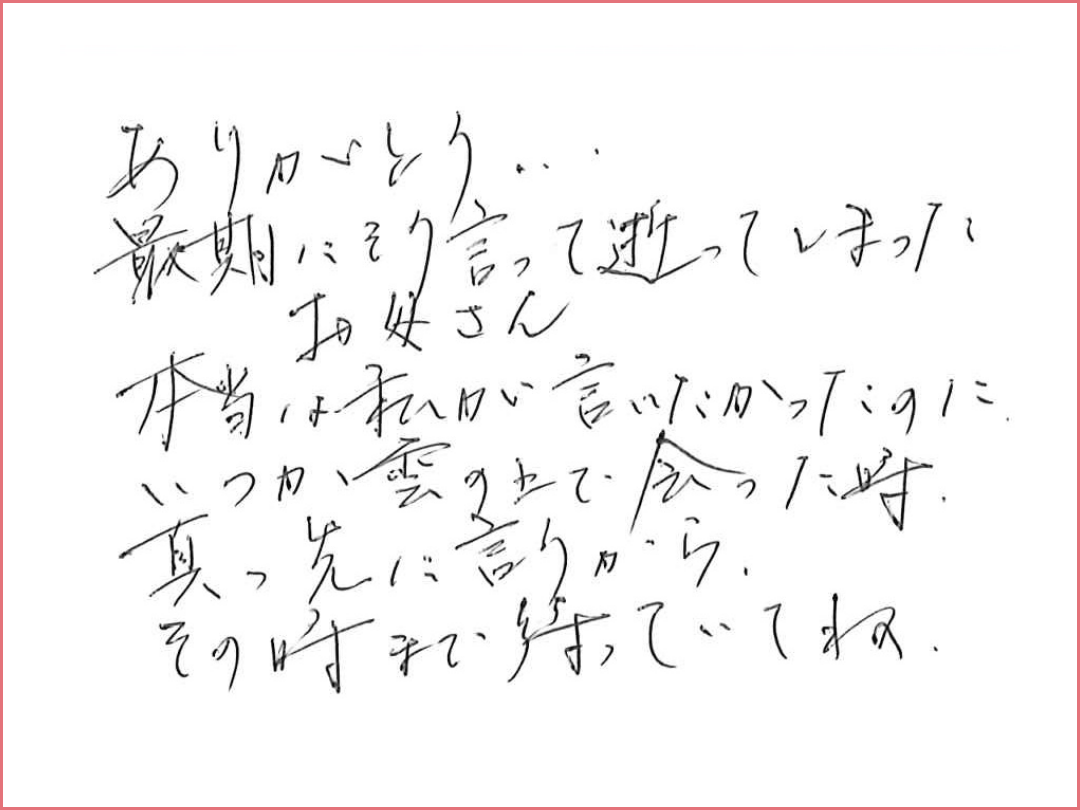 ありがとう...
最期にそう言って逝ってしまった
お母さん
本当は私が言いたかったのに.
いつか雲の上で会った時.
真っ先に言うから.
その時まで待っていてね.